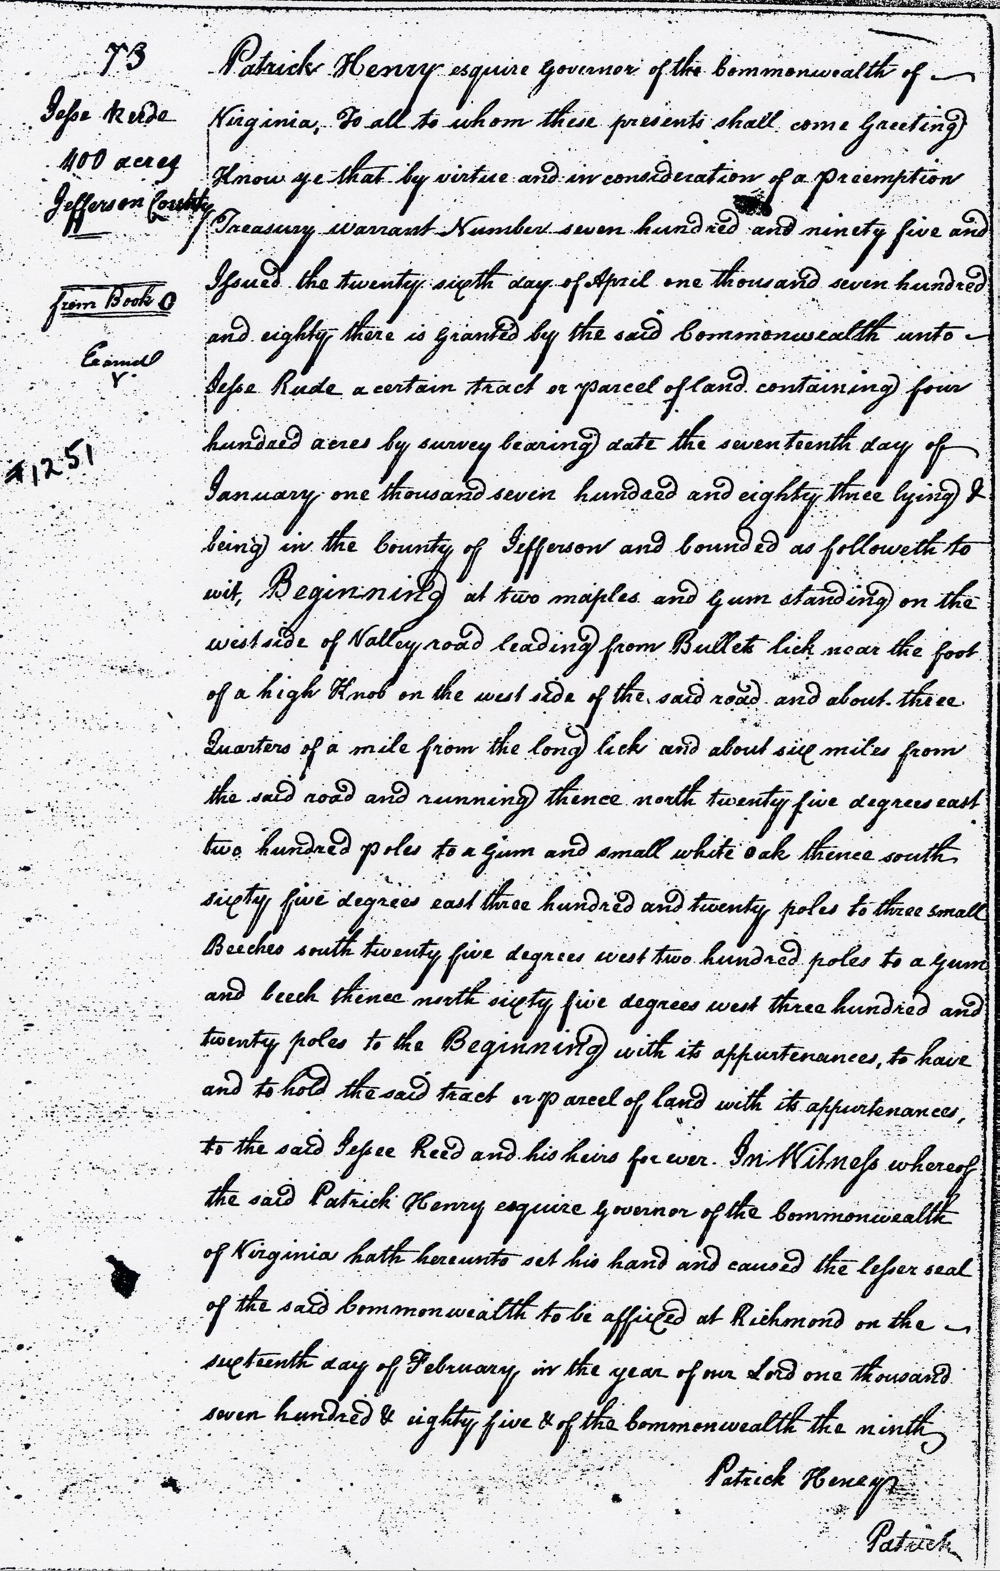 73
Jesse Reede
400 acres
Jefferson County
from Book O
Examd
#1251
Patrick Henry esquire Governor of the Commonwealth of
Virginia, To all to whom these presents shall come Greeting
Know ye that by virtue and in consideration of a preemption
Treasury warrant Number seven hundred and ninety five and
Issued the twenty sixth day of April one thousand seven hundred
and eighty there is Granted by the said Commonwealth unto
Jesse Rude a certain tract or parcel of land containing four
hundred acres by survey bearing date the seventeenth day of
January one thousand seven hundred and eighty three lying &
being in the County of Jefferson and bounded as followeth to
wit, Beginning at two maples and Gum standing on the
west side of Valley road leading from Bullets lick near the foot
of a high Knob on the west side of the said road and about three
Quarters of a mile from the long lick and about six miles from
the said road and running thence north twenty five degrees east
two hundred poles to a Gum and small white oak thence south
sixty five degrees east three hundred and twenty poles to three small
Beeches south twenty five degrees west two hundred poles to a Gum
and beech thence north sixty five degrees west three hundred and
twenty poles to the Beginning with its appurtenances, to have
and to hold the said tract or parcel of land with its appurtenances,
to the said Jessee Reed and his heirs for ever. In Witness whereof
the said Patrick Henry esquire Governor of the Commonwealth
of Virginia hath hereunto set his hand and caused the lesser seal
of the said Commonwealth to be affixed at Richmond on the
sixteenth day of February in the year of our Lord one thousand
seven hundred & eighty five & of the Commonwealth the ninth
Patrick Henry
Patrick